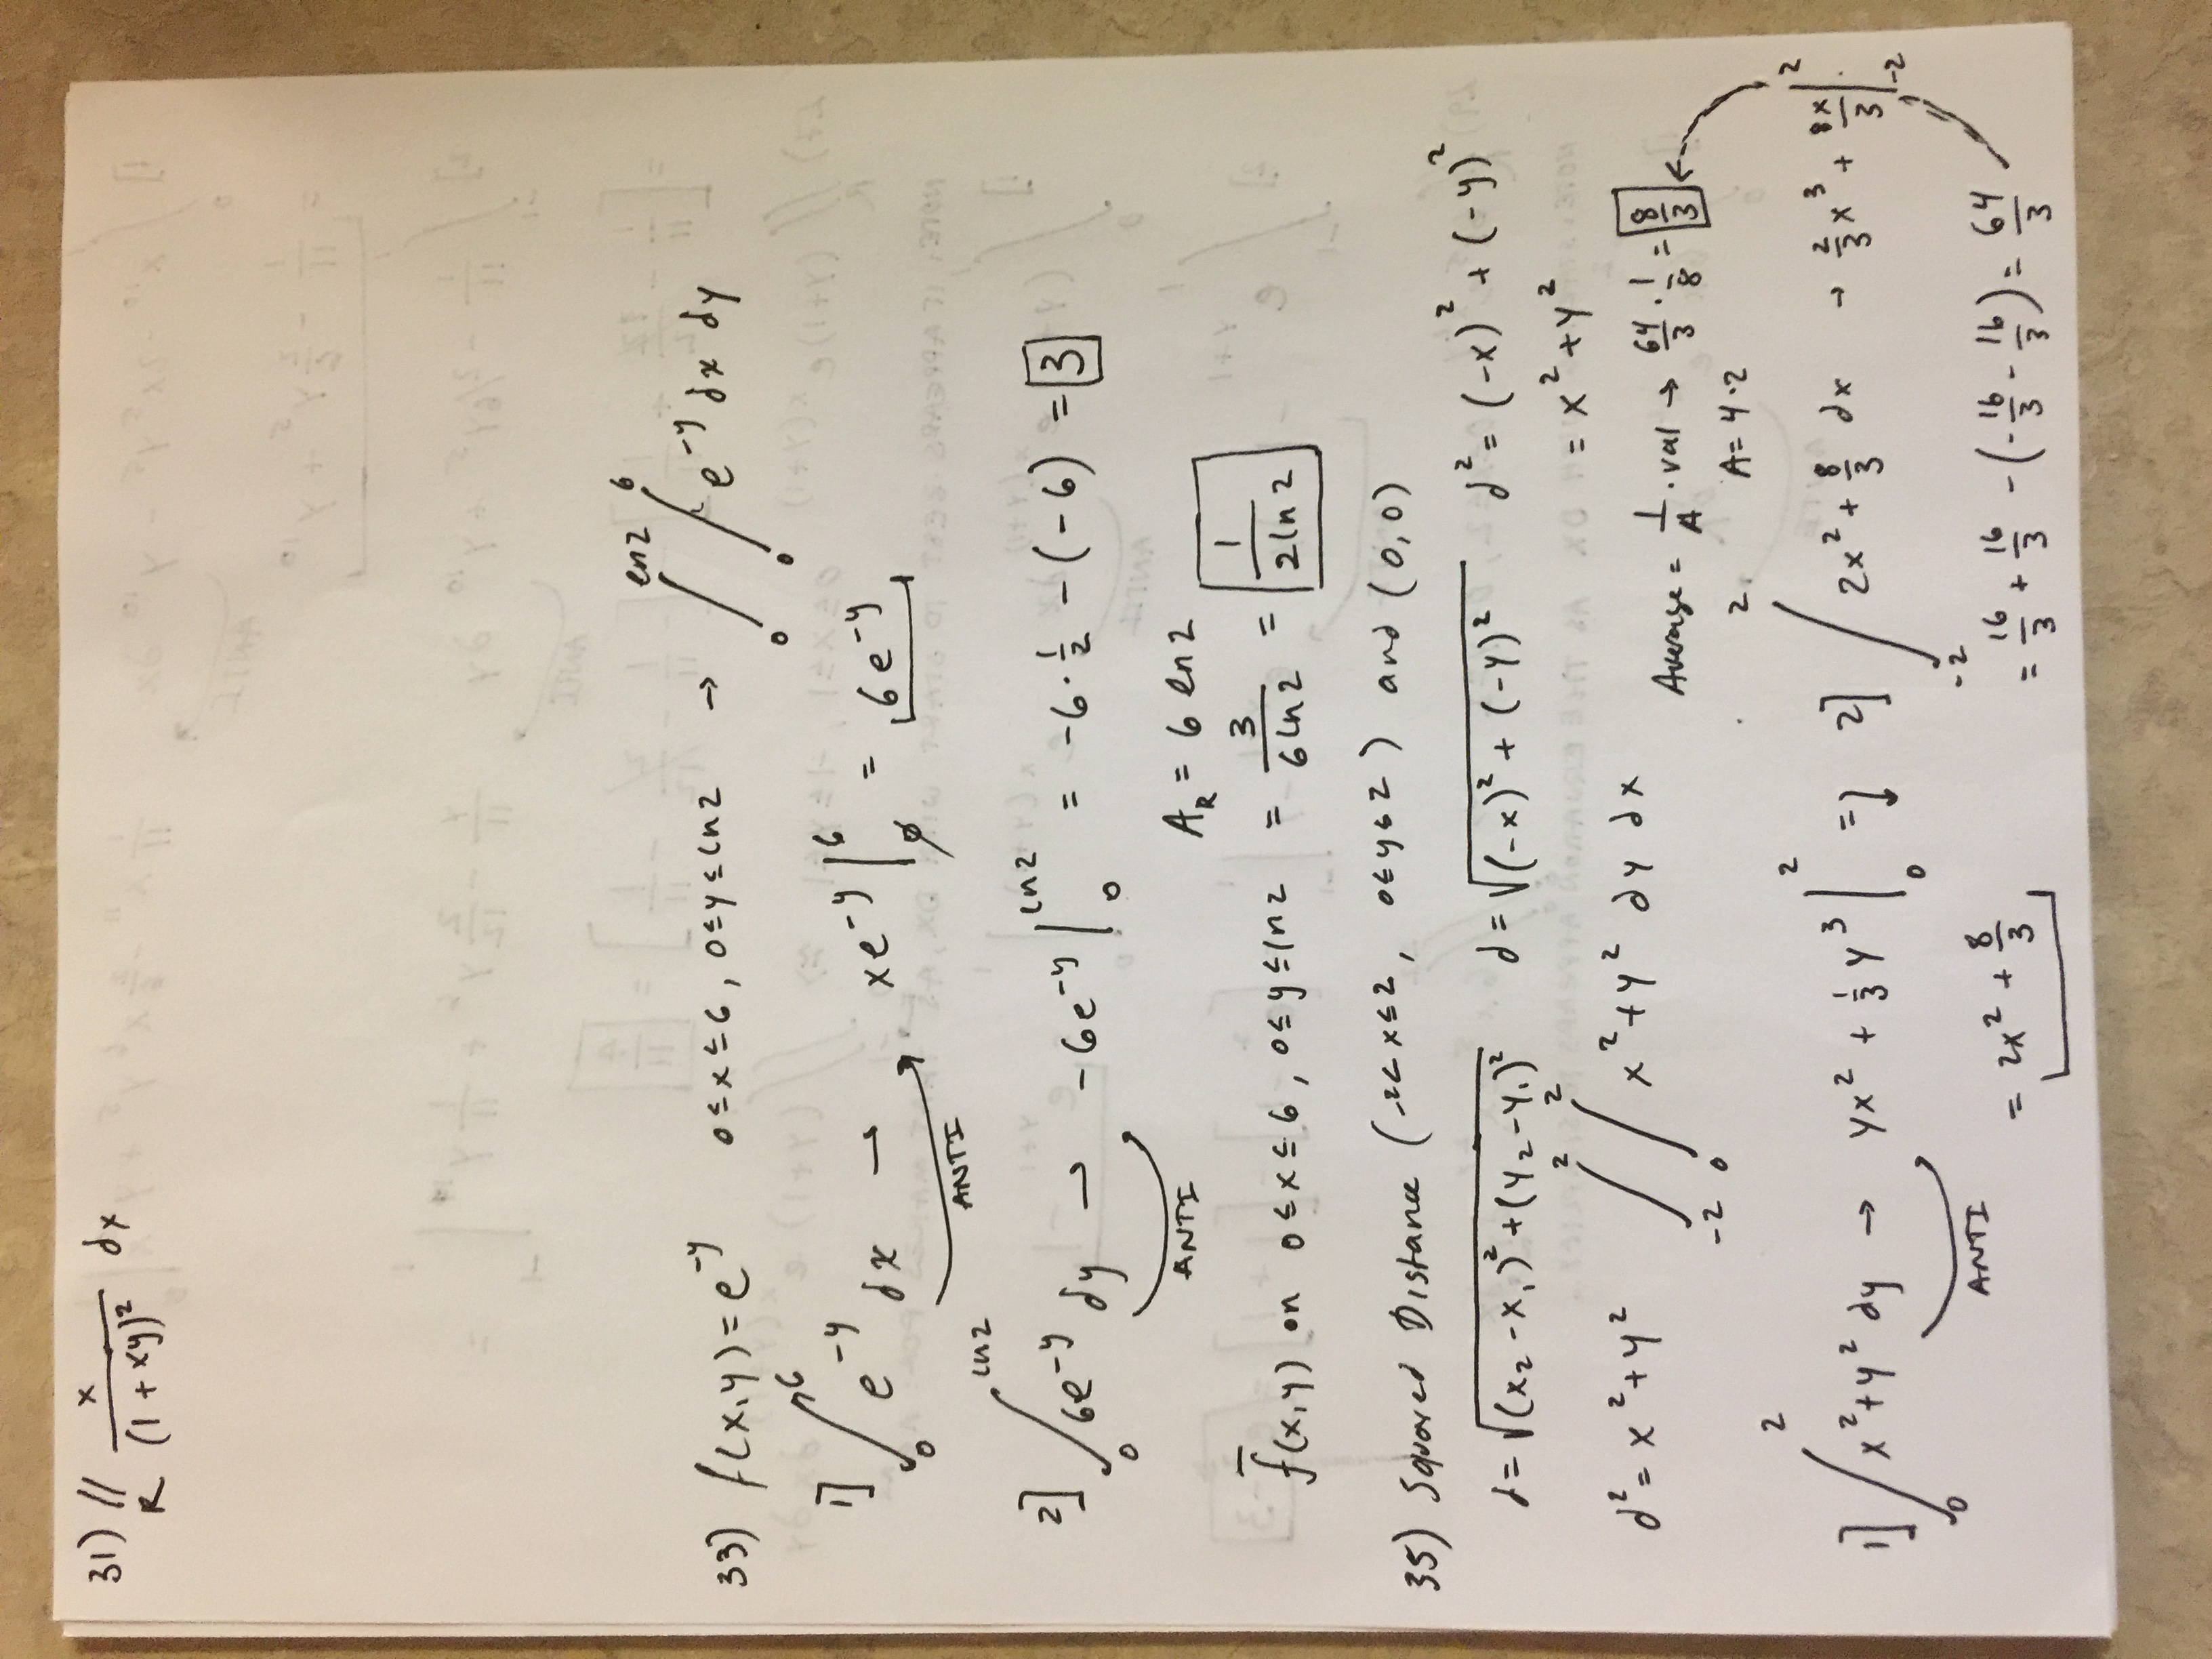 31) ∬_R x/(1 + xy)² dx
33) f(x,y) = e^(-y) 0≤x≤6, 0≤y≤ln2 → ∫_0^(ln2) ∫_0^6 e^(-y) dx dy
1] ∫_0^6 e^(-y) dx → xe^(-y) |_0^6 = 6e^(-y)
ANTI
2] ∫_0^(ln2) 6e^(-y) dy → -6e^(-y) |_0^(ln2) = -6·1/2 - (-6) = 3
ANTI
A_R = 6 ln2
f̄(x,y) on 0≤x≤6, 0≤y≤ln2 = 3/(6ln2) = 1/(2ln2)
35) Squared Distance (-2≤x≤2, 0≤y≤2) and (0,0)
d = √((x₂-x₁)²+(y₂-y₁)²) d = √((-x)²+(-y)²) d² = (-x)² + (-y)²
= x²+y²
d² = x²+y² ∫_(-2)^2 ∫_0^2 x²+y² dy dx
Average = 1/A · val → 64/3 · 1/8 = 8/3
A = 4·2
1] ∫_0^2 x²+y² dy → yx² + 1/3 y³ |_0^2 = 2] ∫_(-2)^2 2x² + 8/3 dx → 2/3 x³ + 8x/3 |_(-2)^2
ANTI
= 2x² + 8/3
= 16/3 + 16/3 - (-16/3 - 16/3) = 64/3